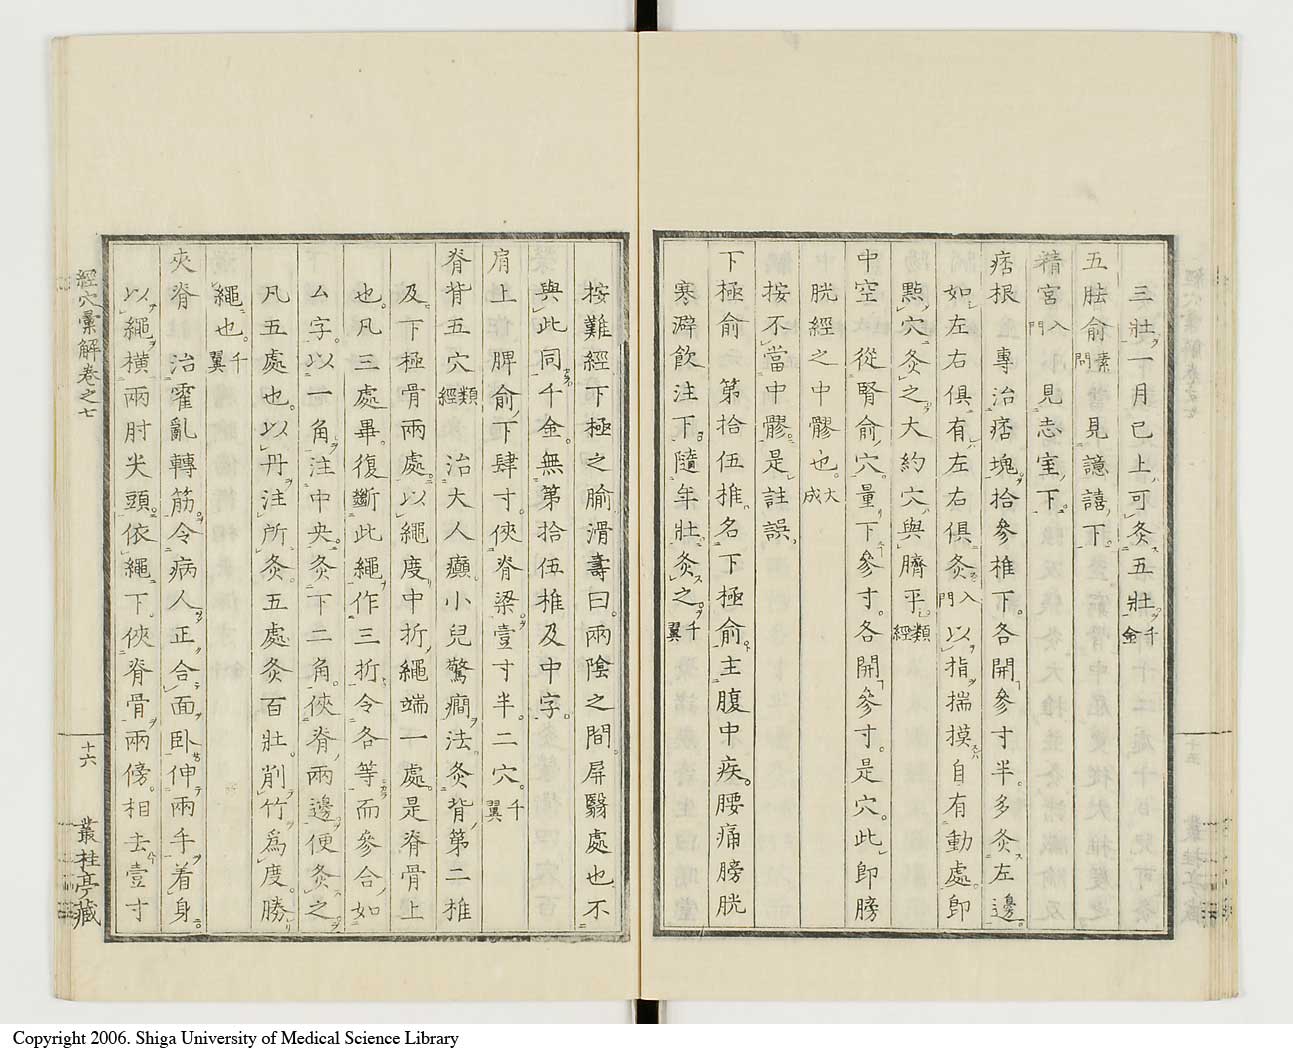 三壯一月已上可灸五壯千金
五胠俞素問見譩譆下
精宮入門見志室下
痞根專治痞塊拾參椎下各開參寸半多灸左邊
如左右俱有左右俱灸入門以指揣摸自有動處即
點穴灸之大約穴與臍平類經
中空從腎俞穴量下參寸各開參寸是穴此即膀
胱經之中髎也大成
按不當中髎是註誤
下極俞第拾伍椎名下極俞主腹中疾腰痛膀胱
寒澼飲注下隨年壯灸之千翼
按難經下極之腧滑壽曰兩陰之間屏翳處也不
與此同千金無第拾伍椎及中字
肩上脾俞下肆寸俠脊梁壹寸半二穴千翼
脊背五穴類經治大人癲小兒驚癇法灸背第二椎
及下極骨兩處以繩度中折繩端一處是脊骨上
也凡三處畢復斷此繩作三折令各等而參合如
厶字以一角注中央灸下二角俠脊兩邊便灸之
凡五處也以丹注所灸五處灸百壯削竹爲度勝
繩也千翼
夾脊治霍亂轉筋令病人正合面卧伸兩手着身
以繩橫兩肘尖頭依繩下俠脊骨兩傍相去壹寸
經穴彙解卷之七
十六
叢桂亭藏
Copyright 2006. Shiga University of Medical Science Library